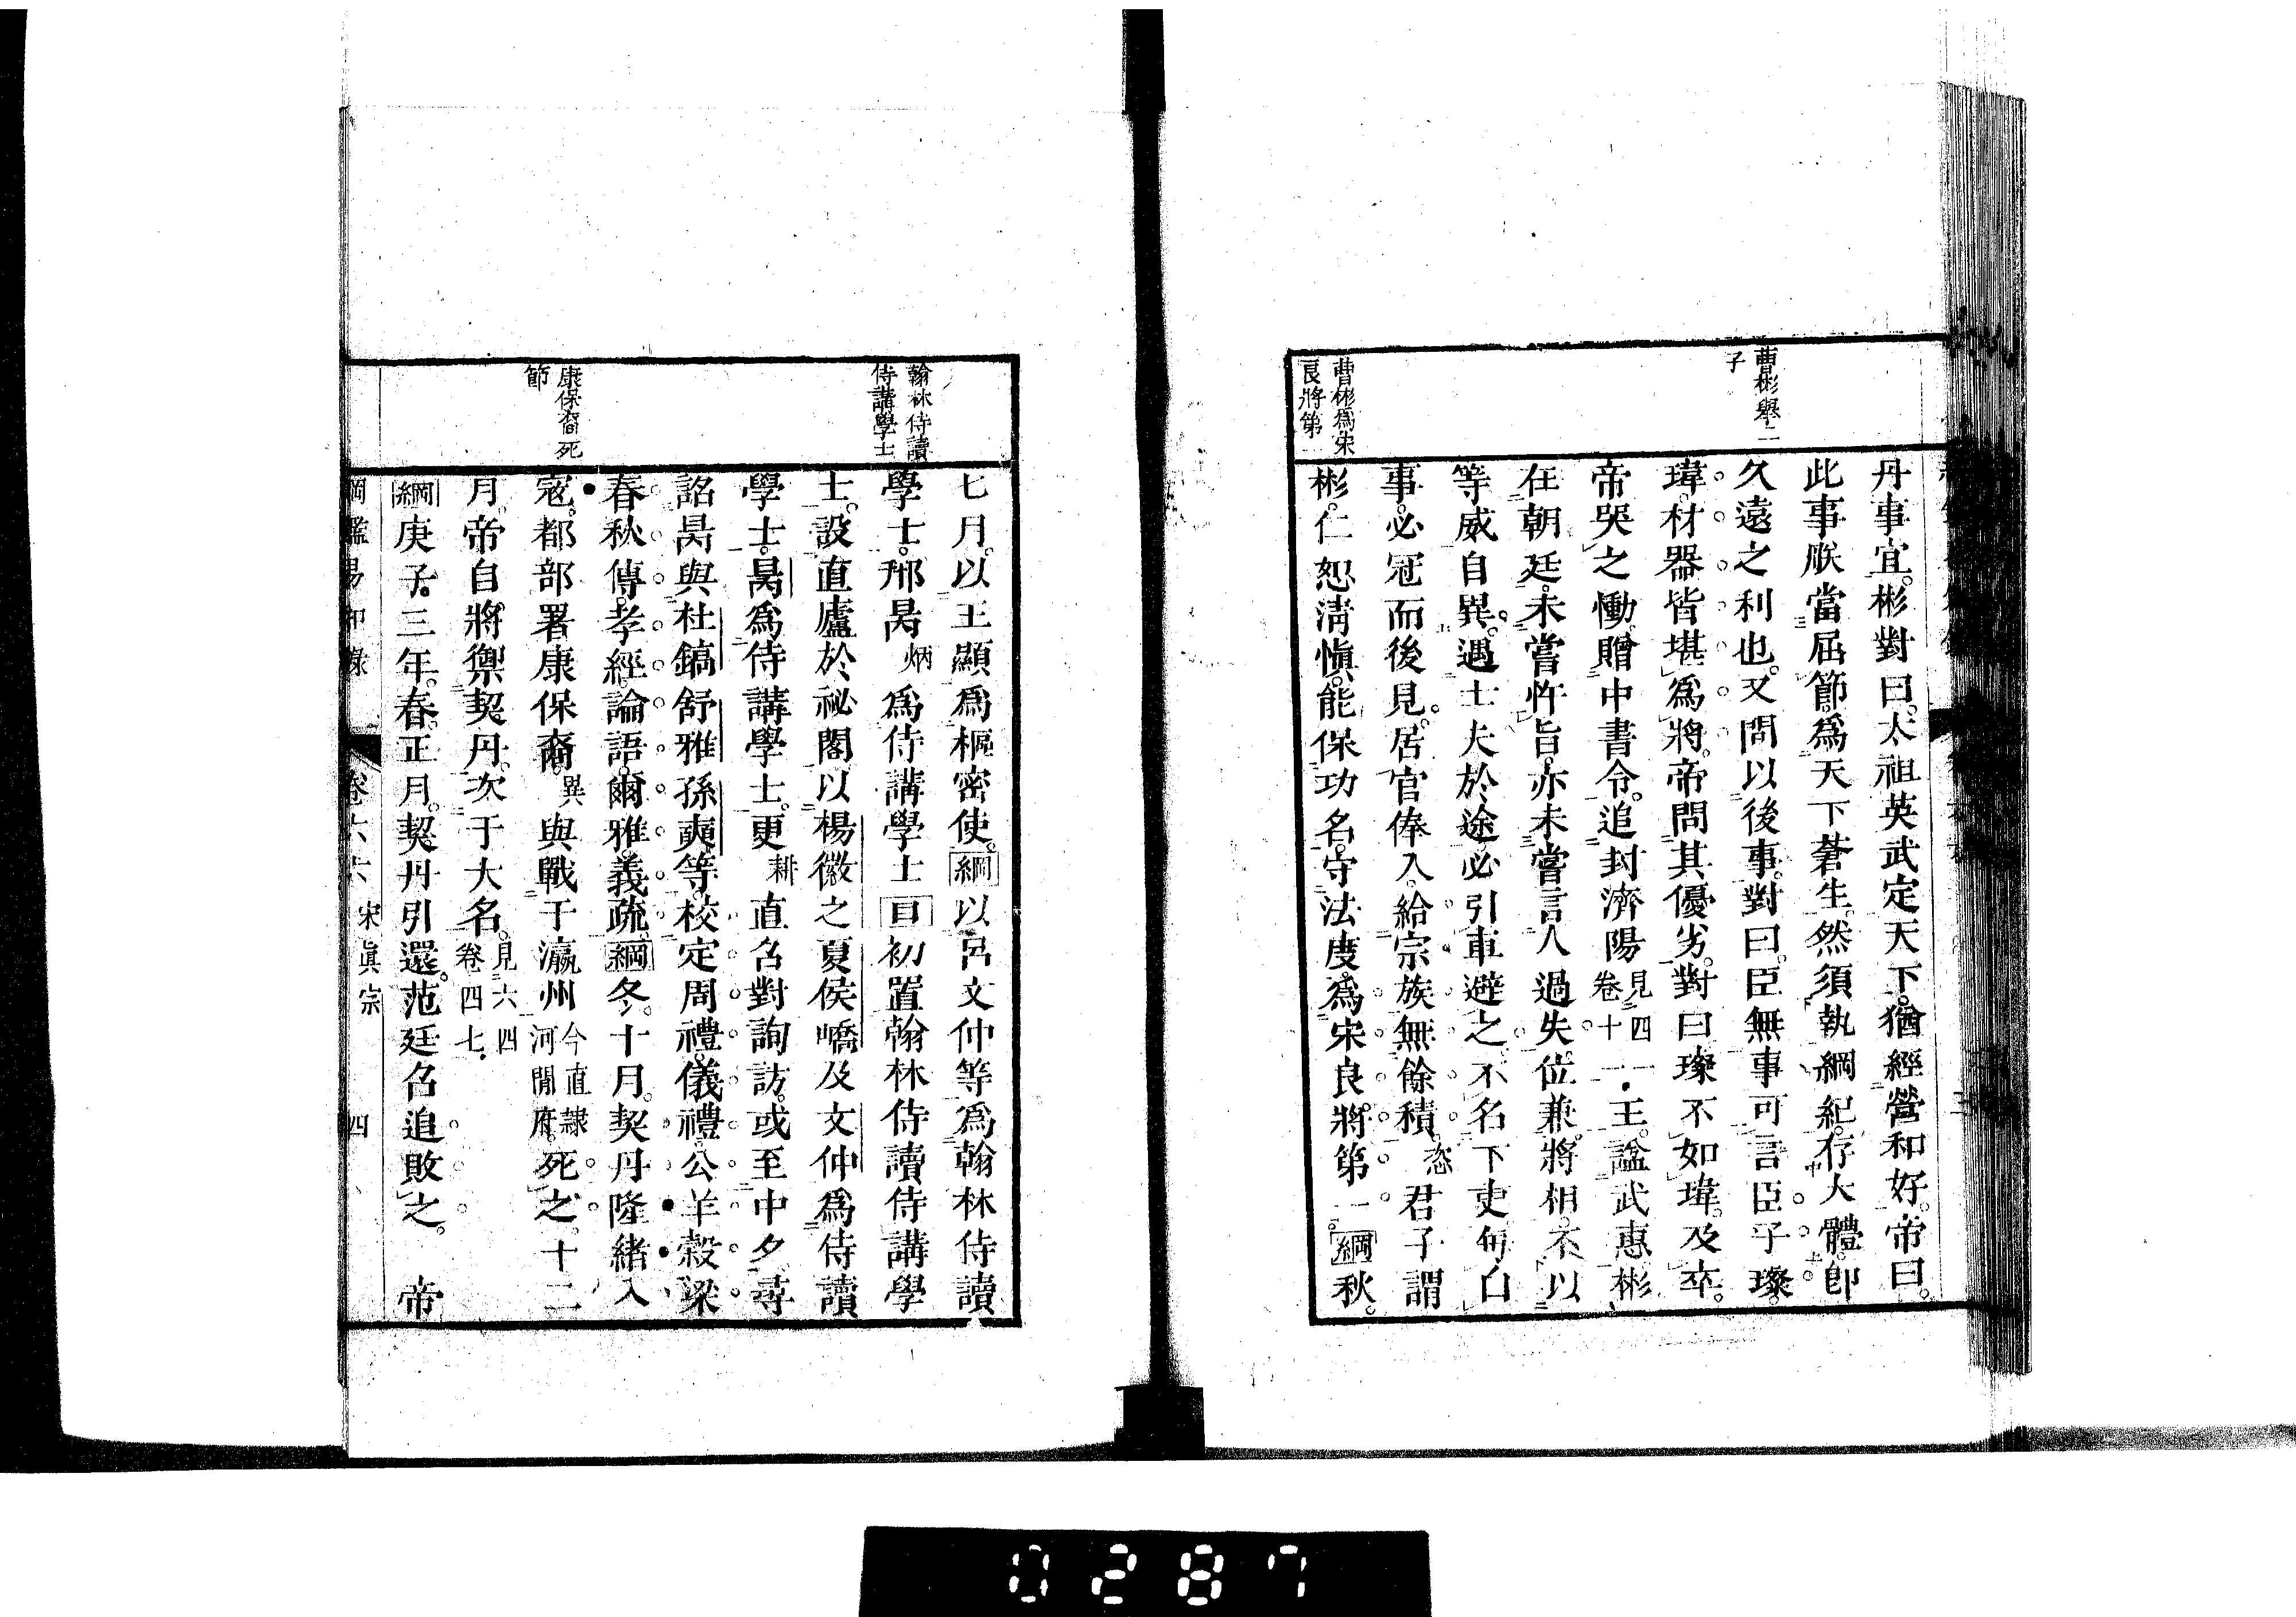 曹彬舉二
子
曹彬爲宋
良將第一
丹事宜彬對曰太祖英武定天下猶經營和好帝曰
此事朕當屈節爲天下蒼生然須執綱紀存大體卽
久遠之利也又問以後事對曰臣無事可言臣子璨
瑋材器皆堪爲將帝問其優劣對曰璨不如瑋及卒
帝哭之慟贈中書令追封濟陽見四一卷十一王諡武惠彬
在朝廷未嘗忤旨亦未嘗言人過失位兼將相不以
等威自異遇士夫於途必引車避之不名下吏每白
事必冠而後見居官俸入給宗族無餘積恣君子謂
彬仁恕淸愼能保功名守法度爲宋良將第一綱秋
翰林侍讀
侍講學士
康保裔死
節
七月以王顯爲樞密使綱以呂文仲等爲翰林侍讀
學士邢昺炳爲侍講學士目初置翰林侍讀侍講學
士設直廬於祕閣以楊徽之夏侯嶠及文仲爲侍讀
學士昺爲侍講學士更耕直召對詢訪或至中夕尋
詔昺與杜鎬舒雅孫奭等校定周禮儀禮公羊穀梁
春秋傳孝經論語爾雅義疏綱冬十月契丹隆緒入
寇都部署康保裔異與戰于瀛州今直隸河閒府死之十二
月帝自將禦契丹次于大名見六四卷四七
綱庚子三年春正月契丹引還范廷召追敗之 帝
綱鑑易知錄 卷六六 宋眞宗 四
0287